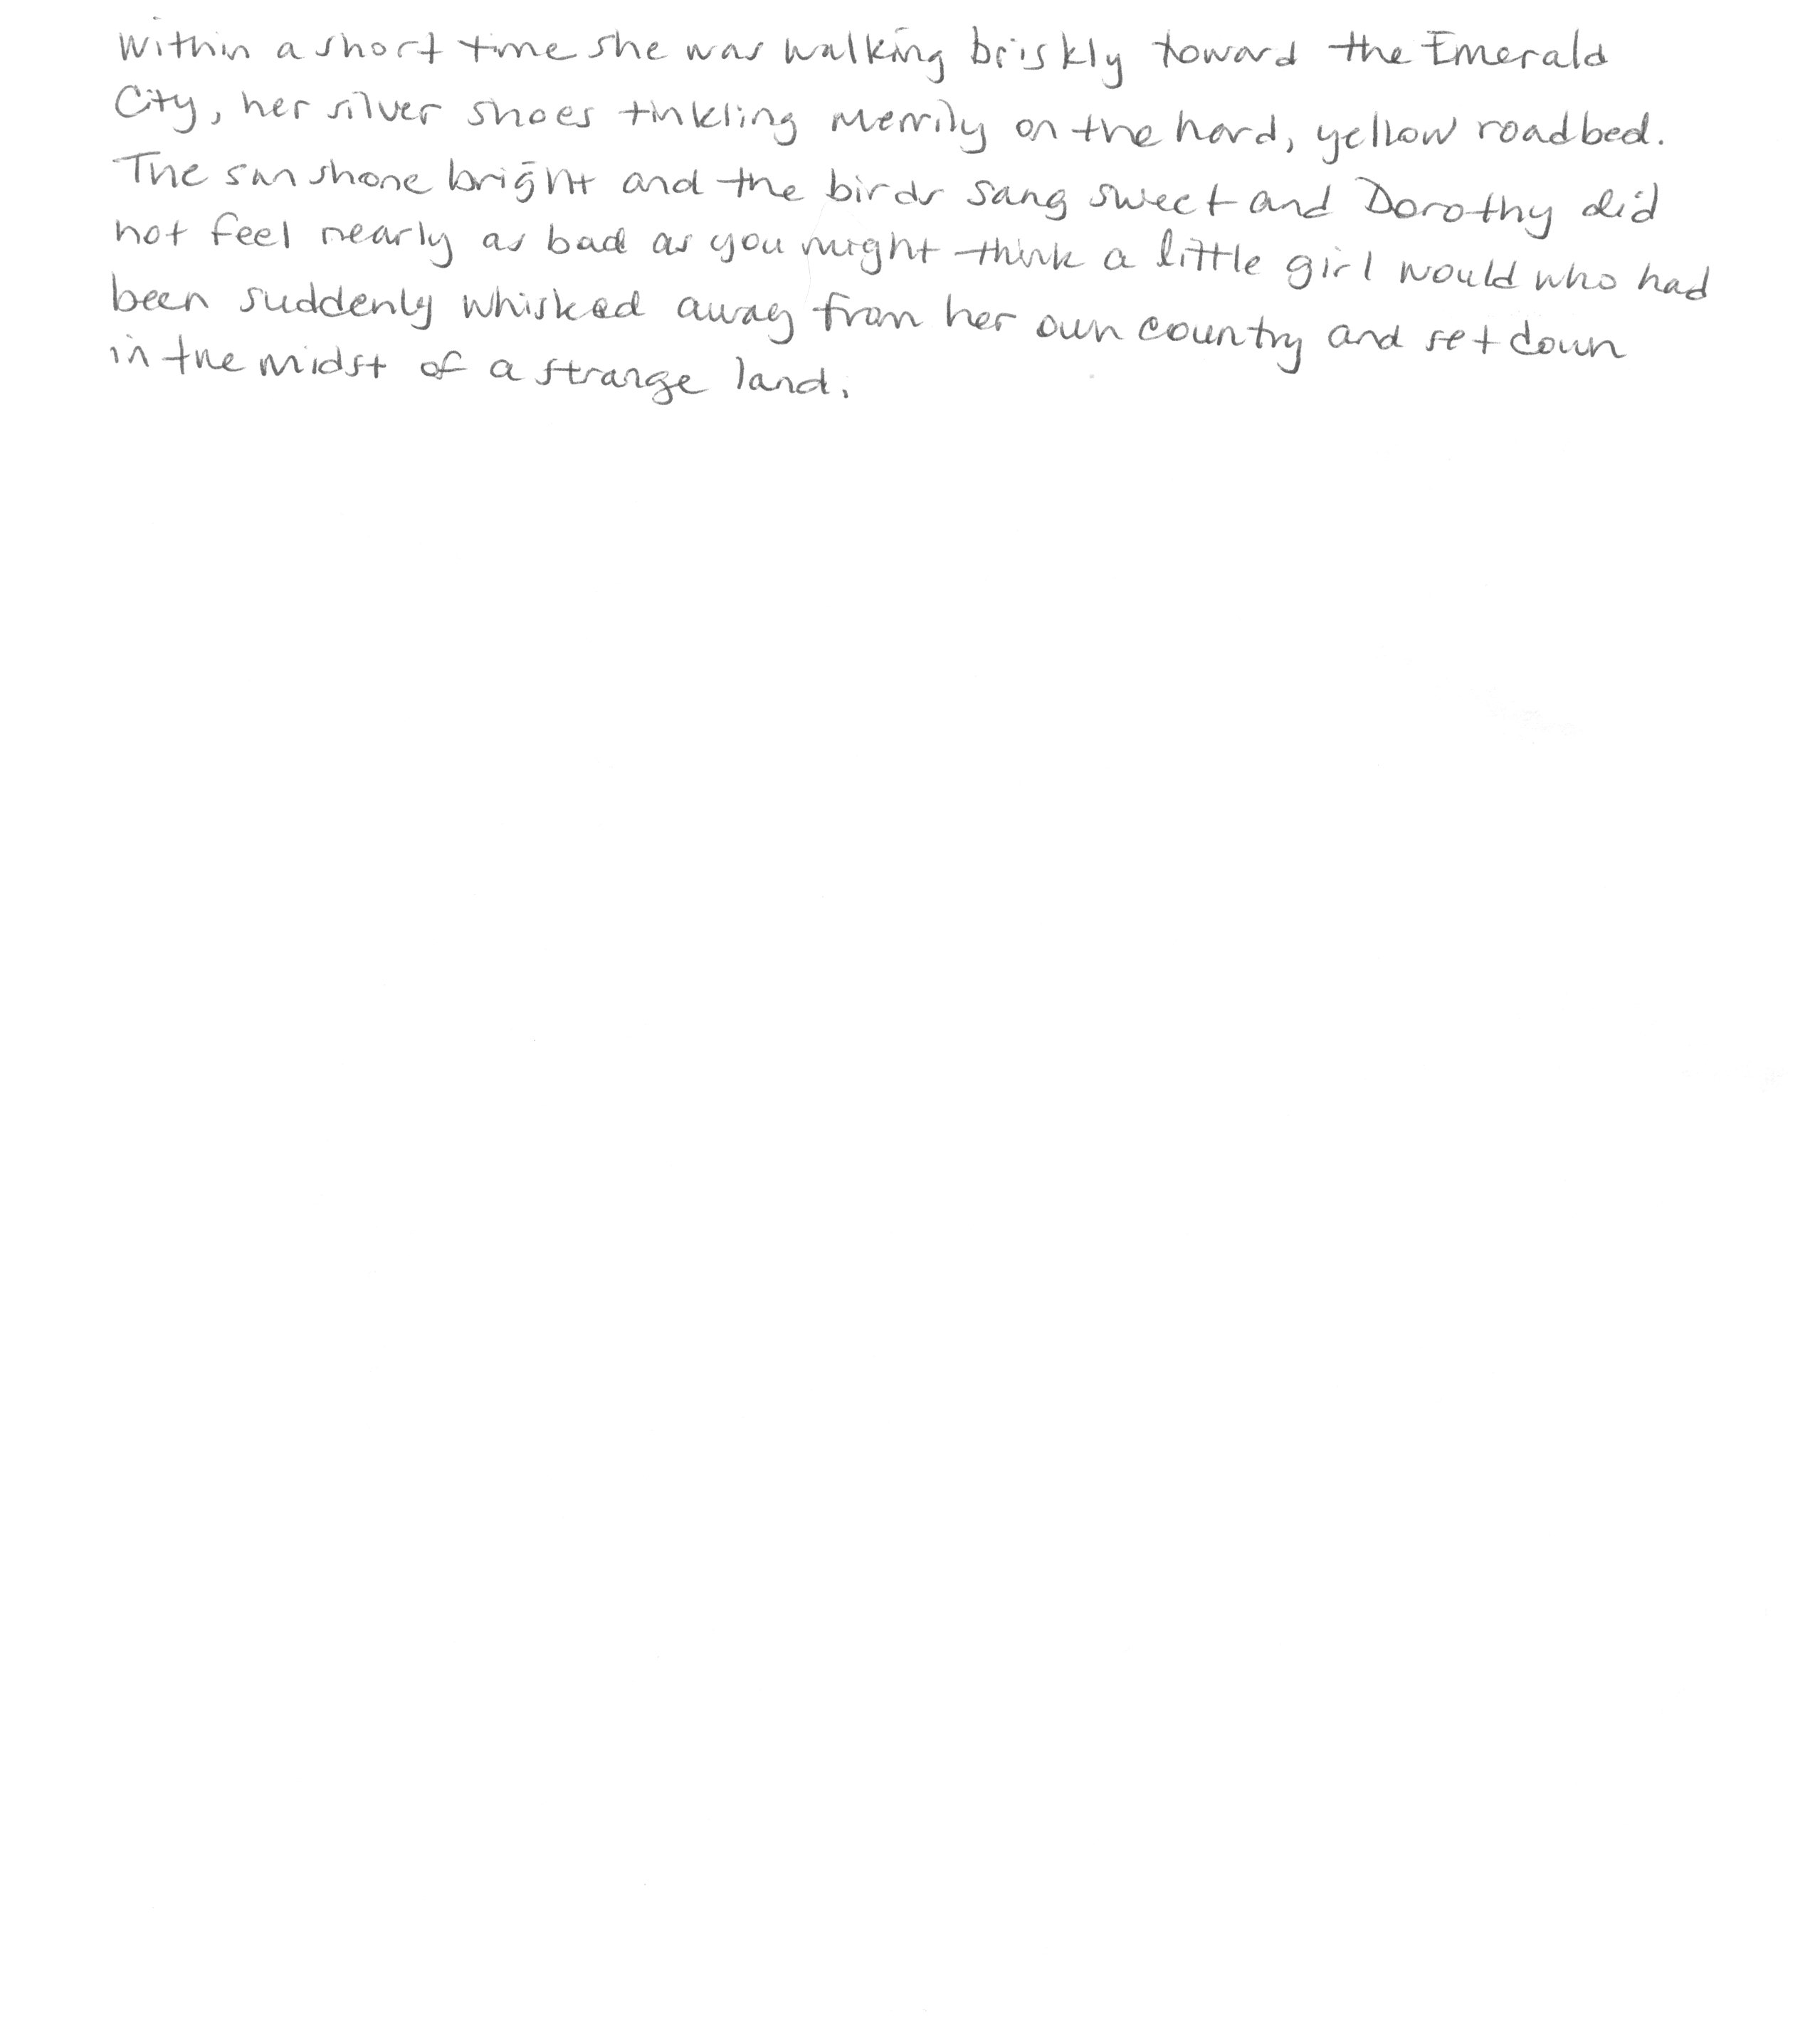 Within a short time she was walking briskly toward the Emerald
City, her silver shoes tinkling merrily on the hard, yellow roadbed.
The sun shone bright and the birds sang sweet and Dorothy did
not feel nearly as bad as you might think a little girl would who had
been suddenly whisked away from her own country and set down
in the midst of a strange land.